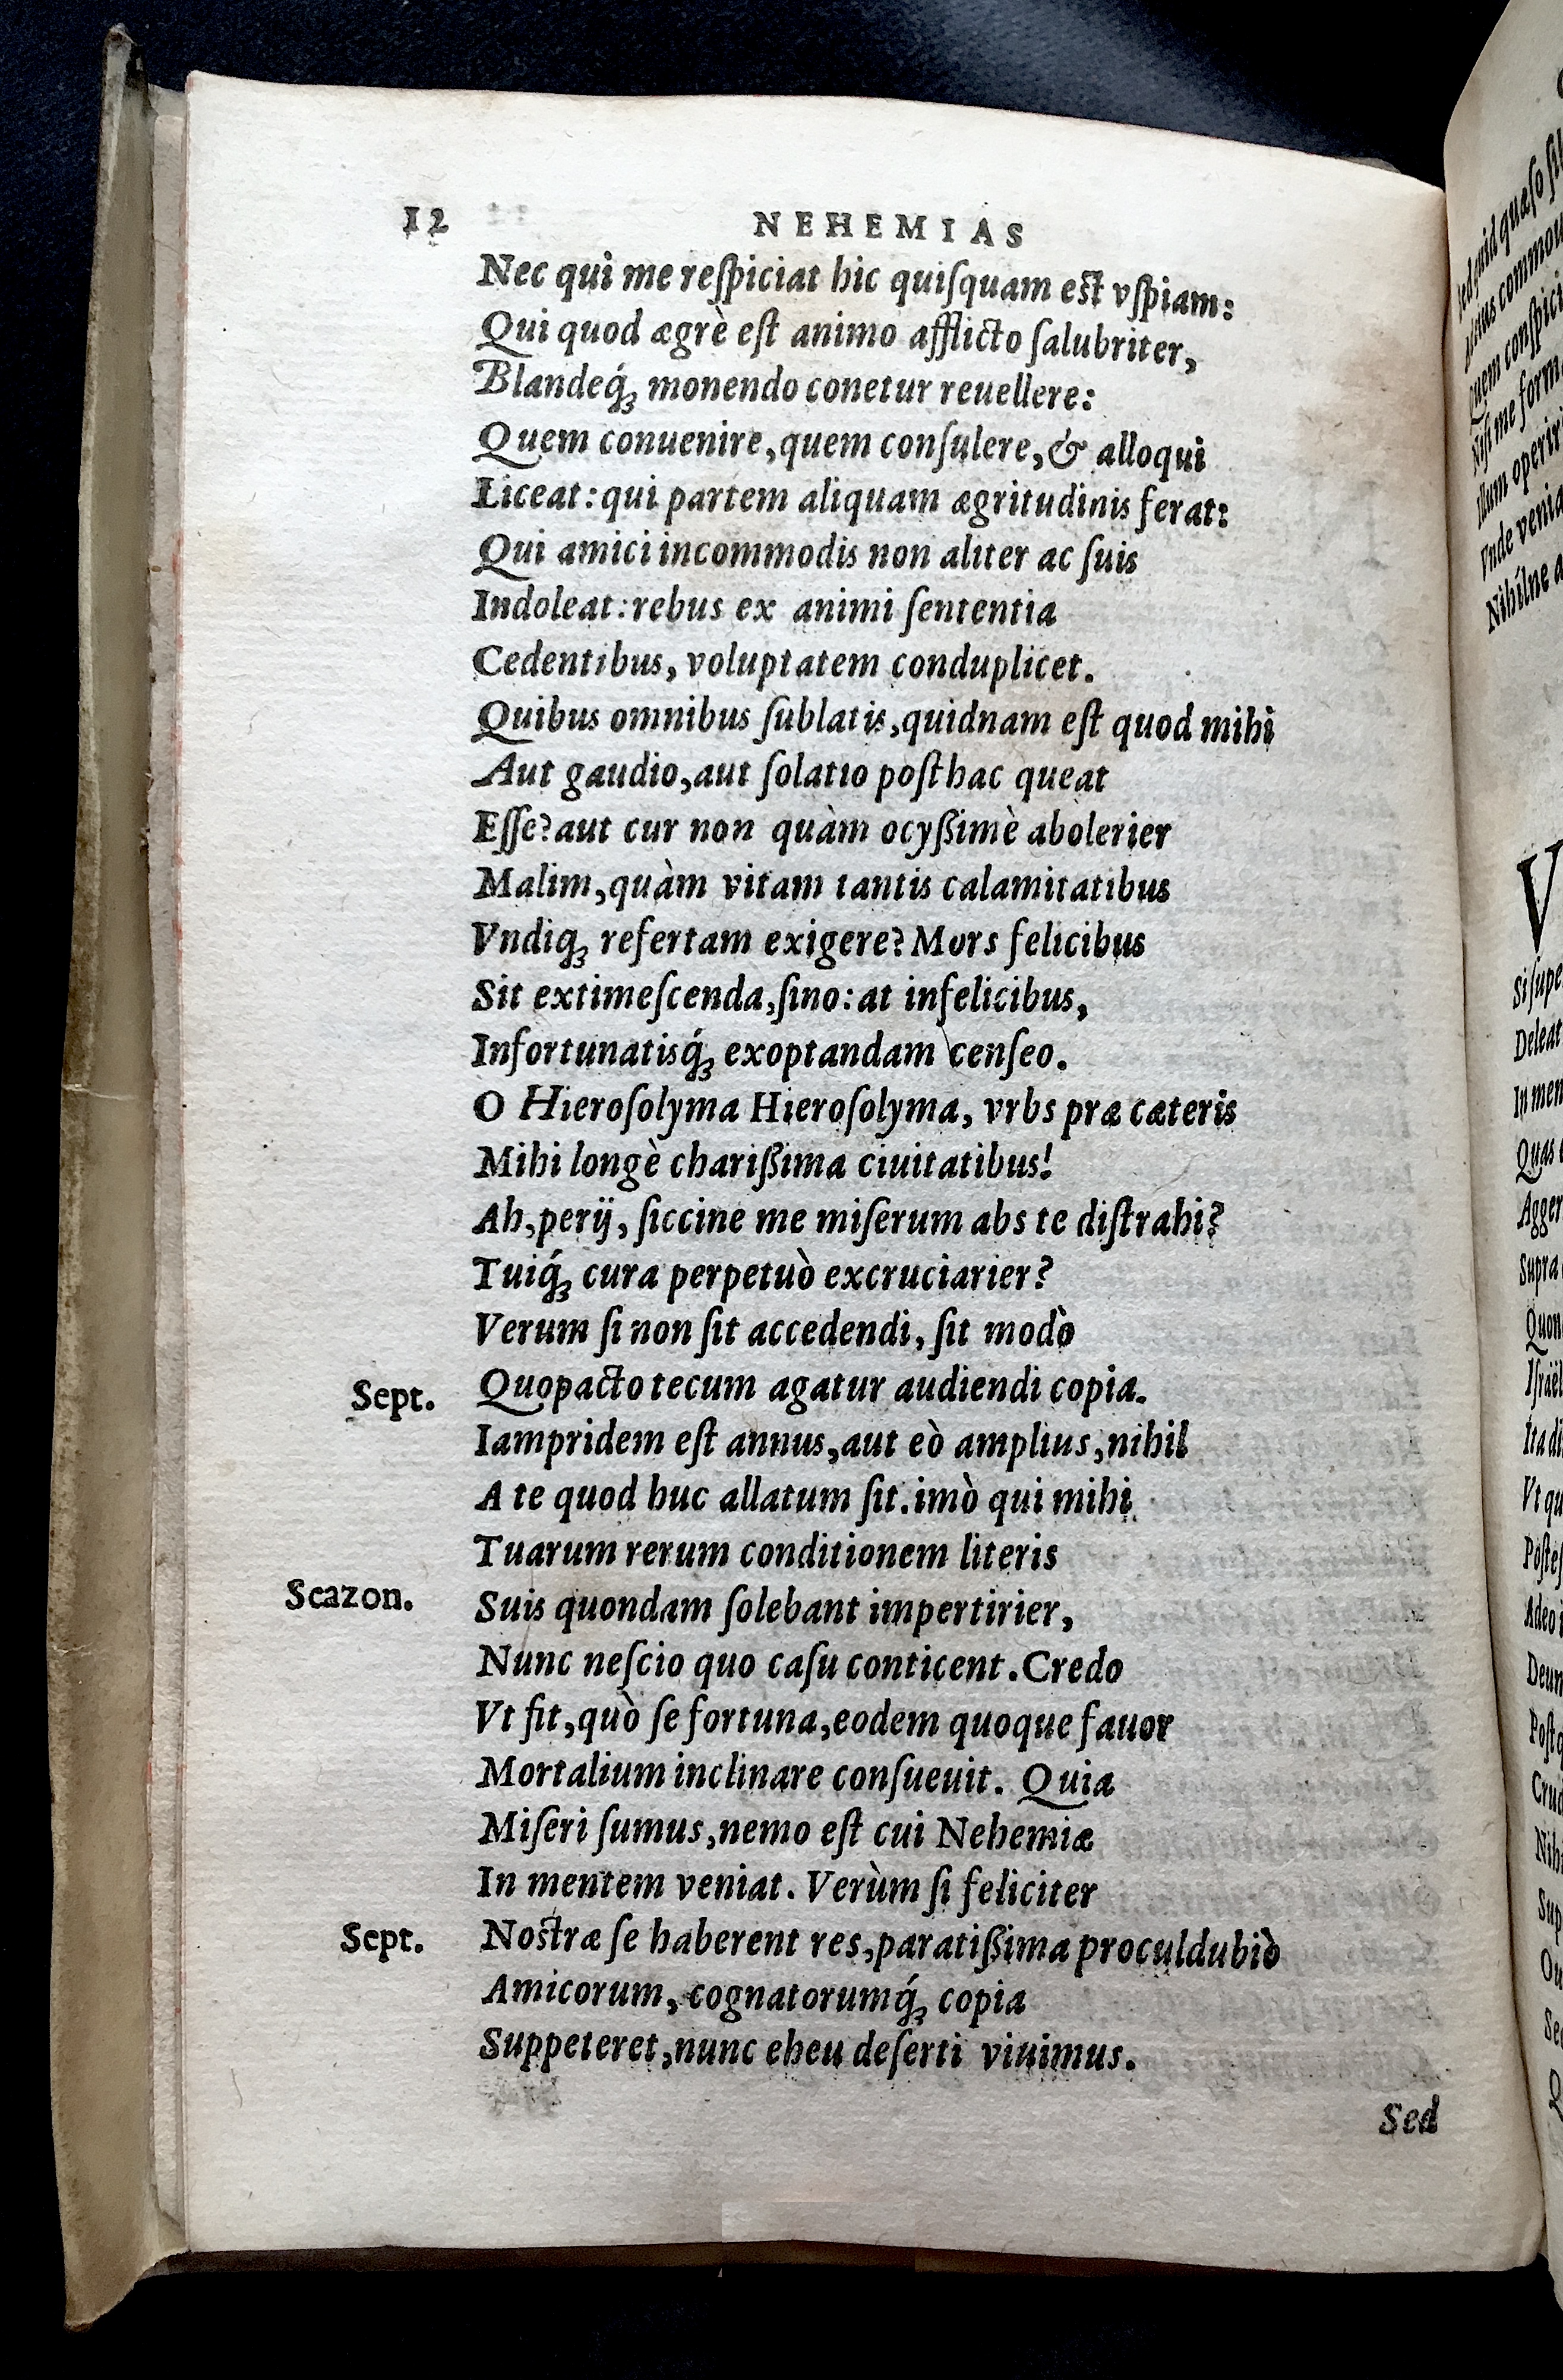 12 NEHEMIAS
Nec qui me reſpiciat hic quiſquam eſt vſpiam:
Qui quod ægrè eſt animo afflicto ſalubriter,
Blandeq́ꝫ monendo conetur reuellere:
Quem conuenire, quem conſulere, & alloqui
Liceat: qui partem aliquam ægritudinis ferat:
Qui amici incommodis non aliter ac ſuis
Indoleat: rebus ex animi ſententia
Cedentibus, voluptatem conduplicet.
Quibus omnibus ſublatis, quidnam eſt quod mihi
Aut gaudio, aut ſolatio poſthac queat
Eſſe? aut cur non quàm ocyßimè abolerier
Malim, quàm vitam tantis calamitatibus
Vndiqꝫ refertam exigere? Mors felicibus
Sit extimeſcenda, ſino: at infelicibus,
Infortunatisq́ꝫ exoptandam cenſeo.
O Hieroſolyma Hieroſolyma, vrbs præ cæteris
Mihi longè charißima ciuitatibus!
Ah, perij, ſiccine me miſerum abs te diſtrahi?
Tuiq́ꝫ cura perpetuò excruciarier?
Verum ſi non ſit accedendi, ſit modò
Sept. Quopacto tecum agatur audiendi copia.
Iampridem eſt annus, aut eò amplius, nihil
A te quod huc allatum ſit. imò qui mihi
Tuarum rerum conditionem literis
Scazon. Suis quondam ſolebant impertirier,
Nunc neſcio quo caſu conticent. Credo
Vt fit, quò ſe fortuna, eodem quoque fauor
Mortalium inclinare conſueuit. Quia
Miſeri ſumus, nemo eſt cui Nehemiæ
In mentem veniat. Verùm ſi feliciter
Sept. Noſtræ ſe haberent res, paratißima proculdubiò
Amicorum, cognatorumq́ꝫ copia
Suppeteret, nunc eheu deſerti viuimus.
Sed
ſed quid quæſo
Quem
Niſi me
Illum
Vnde
Nihilne
V
Si
Deleat
Quas
Supra
Vt
Sed